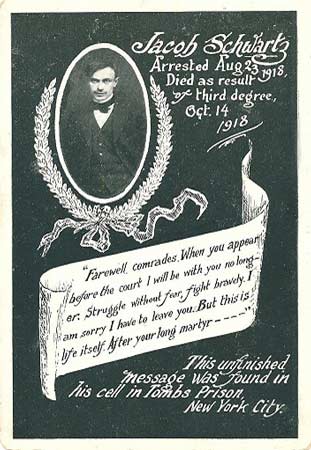 Jacob Schwartz
Arrested Aug 23, 1918.
Died as result
of third degree,
Oct. 14
1918
"Farewell, comrades. When you appear
before the court I will be with you no long-
er. Struggle without fear, fight bravely. I
am sorry I have to leave you. But this is
life itself. After your long martyr-----"
This unfinished
message was found in
his cell in Tombs Prison,
New York City.